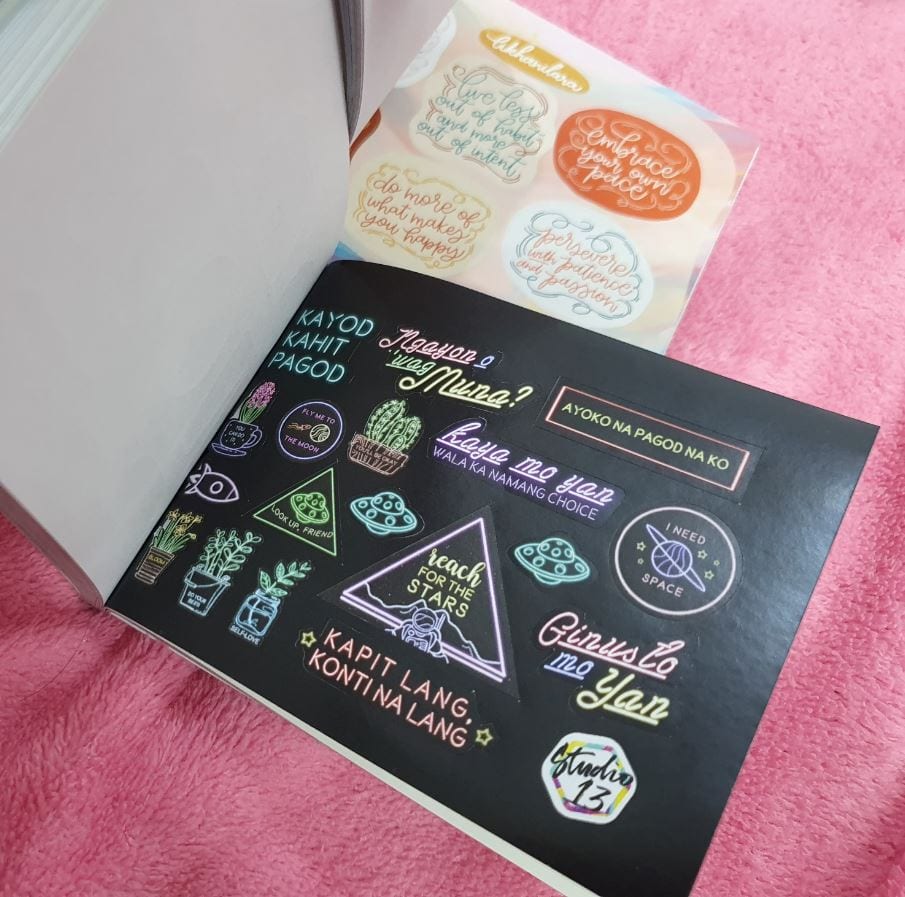 likhanilara
live less
out of habit
and more
out of intent
embrace
your own
pace
do more of
what makes
you happy
persevere
with patience
and passion
KAYOD
KAHIT
PAGOD
Ngayon o
'wag
Muna?
AYOKO NA PAGOD NA KO
YOU
CAN DO
IT
FLY ME TO
THE MOON
YOU'LL BE OKAY
kaya mo yan
WALA KA NAMANG CHOICE
LOOK UP, FRIEND
I NEED
SPACE
BLOOM
DO YOUR
BEST!
SELF-LOVE
reach
FOR THE
STARS
Ginusto
mo Yan
KAPIT LANG,
KONTI NA LANG
Studio
13